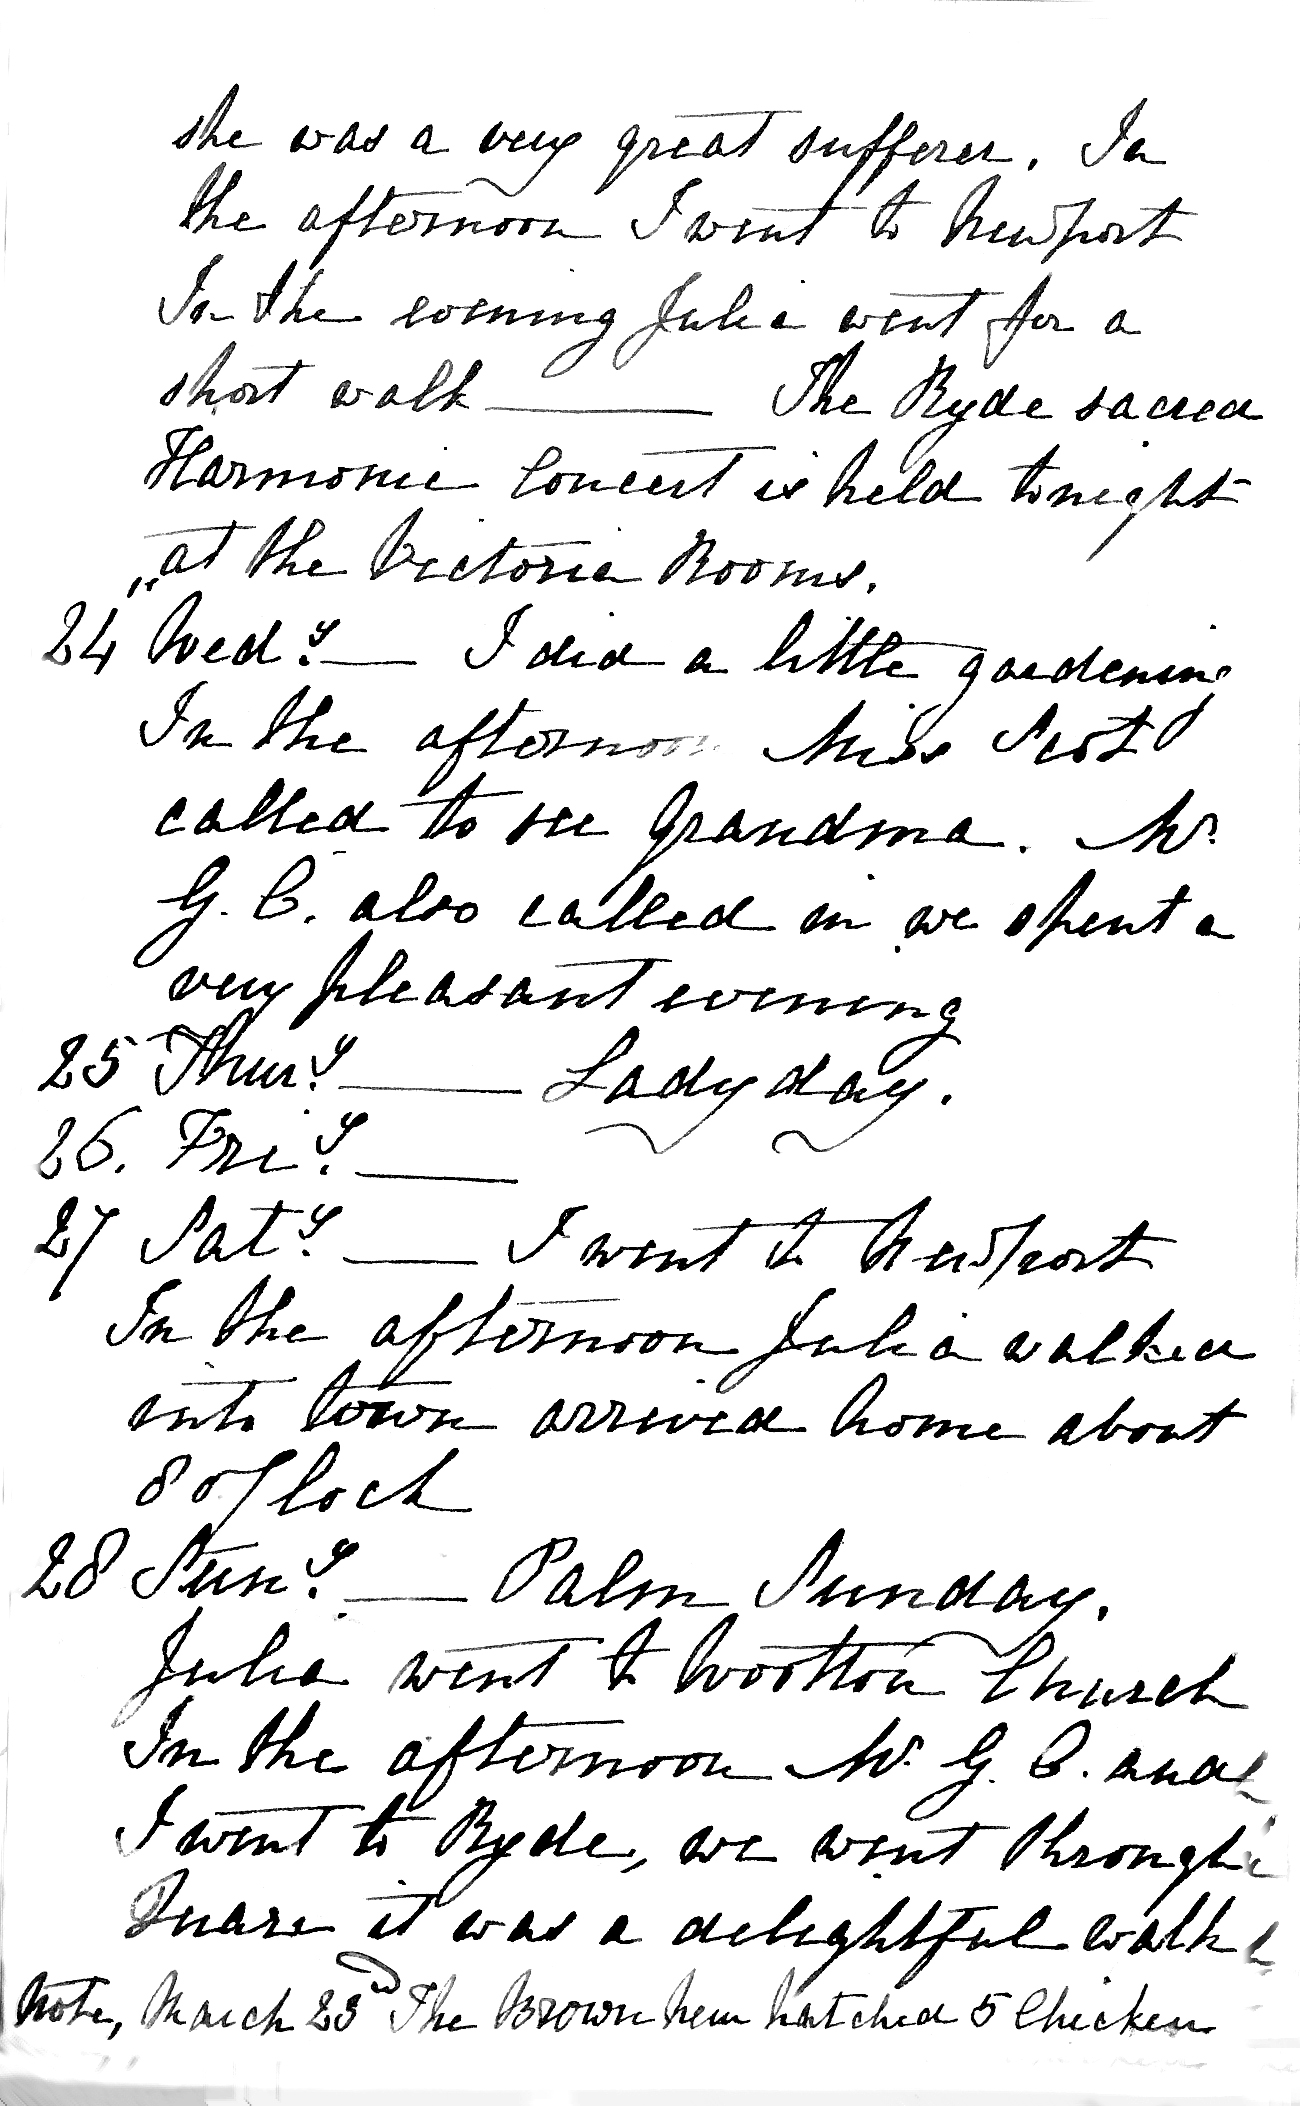 she was a very great sufferer. In
the afternoon I went to Newport
In the evening Julia went for a
short walk —— The Ryde sacred
Harmonic Concert is held tonight
„ at the Victoria Rooms.
24 Wedy. — I did a little gardening
In the afternoon Miss Scot
called to see Grandma. Mr.
G. C. also called in we spent a
very pleasant evening
25 Thury. —— Lady day.
26. Friy. ——
27 Saty. —— I went to Newport
In the afternoon Julia walked
into town arrived home about
8 o'Clock
28 Suny. —— Palm Sunday.
Julia went to Wootton Church
In the afternoon Mr. G. C. and
I went to Ryde, we went through
Quarr it was a delightful walk
Note, March 23rd The Brown hen hatched 5 Chicken